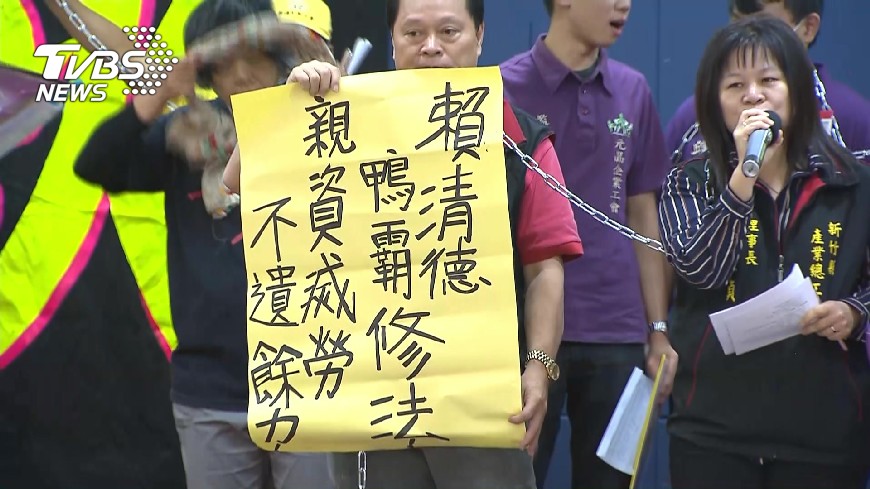 TVBS
NEWS
賴清德
鴨霸修法
親資烕勞
不遺餘力
元晶企業工會
理事長
新竹縣
產業總工